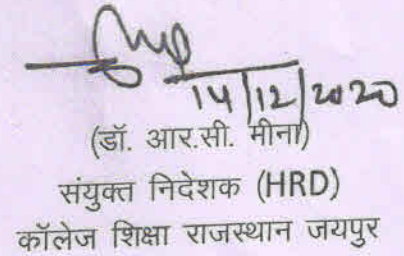 14/12/2020
(डॉ. आर.सी. मीना)
संयुक्त निदेशक (HRD)
कॉलेज शिक्षा राजस्थान जयपुर